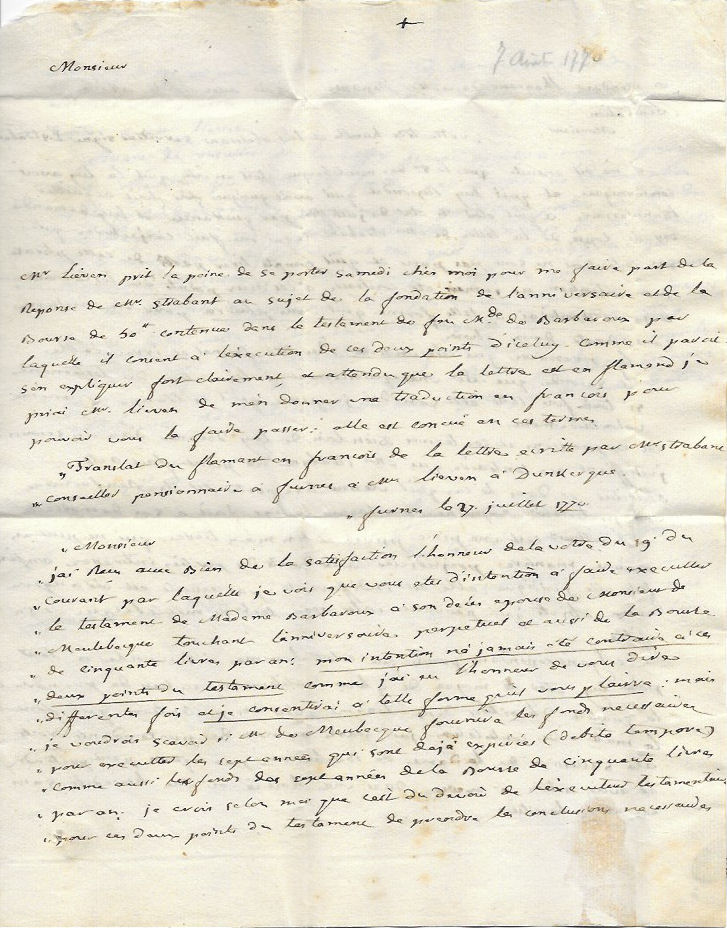 +
7 Août 1770
Monsieur
Mr Lieven prit la peine de se porter samedi chés moi pour me faire part de la
Reponse de Mr. Strabant au sujet de la fondation de l'anniversaire et de la
Bourse de 50# contenue dans le testament de feu Mde de Barbaroux par
laquelle il consent à l'execution de ces deux points d'iceluy. Comme il paroit
s'en expliquer fort clairement, et attendu que la lettre est en flamand je
priai Mr. lieven de m'en donner une traduction en francois pour
pouvoir vous la faire passer: elle est concue en ces termes
"Translat du flamant en francois de la lettre ecritte par Mr Strabant
"Conseiller pensionnaire à furnes à Mr lieven à Dunkerque.
"furnes le 27. juillet 1770
"Monsieur
"j'ai Reçu avec Bien de la satisfaction l'honneur de la votre du 19. du
"Courant par laquelle je vois que vous etes d'intention à faire executter
"le testament de Madame Barbaroux à son décés epouse de Monsieur de
"Meulebecque touchant l'anniversaire perpetuel et aussi de la Bourse
"de cinquante livres par an: mon intention n'a jamais été contraire à ces
"deux points du testament comme j'ai eu l'honneur de vous dire
"differentes fois et je consentirai à telle forme qu'il vous plaira: mais
"je voudrois scavoir si Mr de Meubecque fournira les fonds necessaires
"pour executter les sept années qui sont dejà expirées (debito tempore)
"comme aussi les fonds des sept années de la Bourse de cinquante livres
"par an: je crois selon moi que c'est du devoir de l'executeur testamentaire
"pour ces deux points du testament de prendre les conclusions necessaires